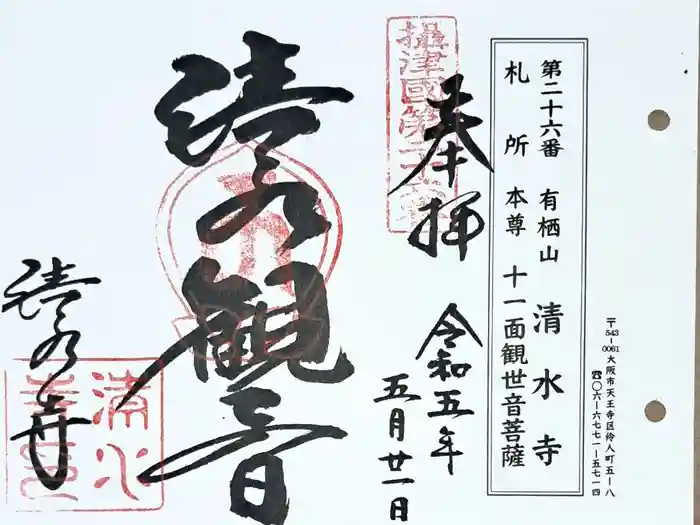 〒543-0061 大阪市天王寺区伶人町五ー八
☎〇六ー六七七一ー五七一四
第二十六番 有栖山 清水寺
札所本尊 十一面観世音菩薩
奉拝
攝津國第二十六番
令和五年
五月廿一日
清水観音
清水寺
清水